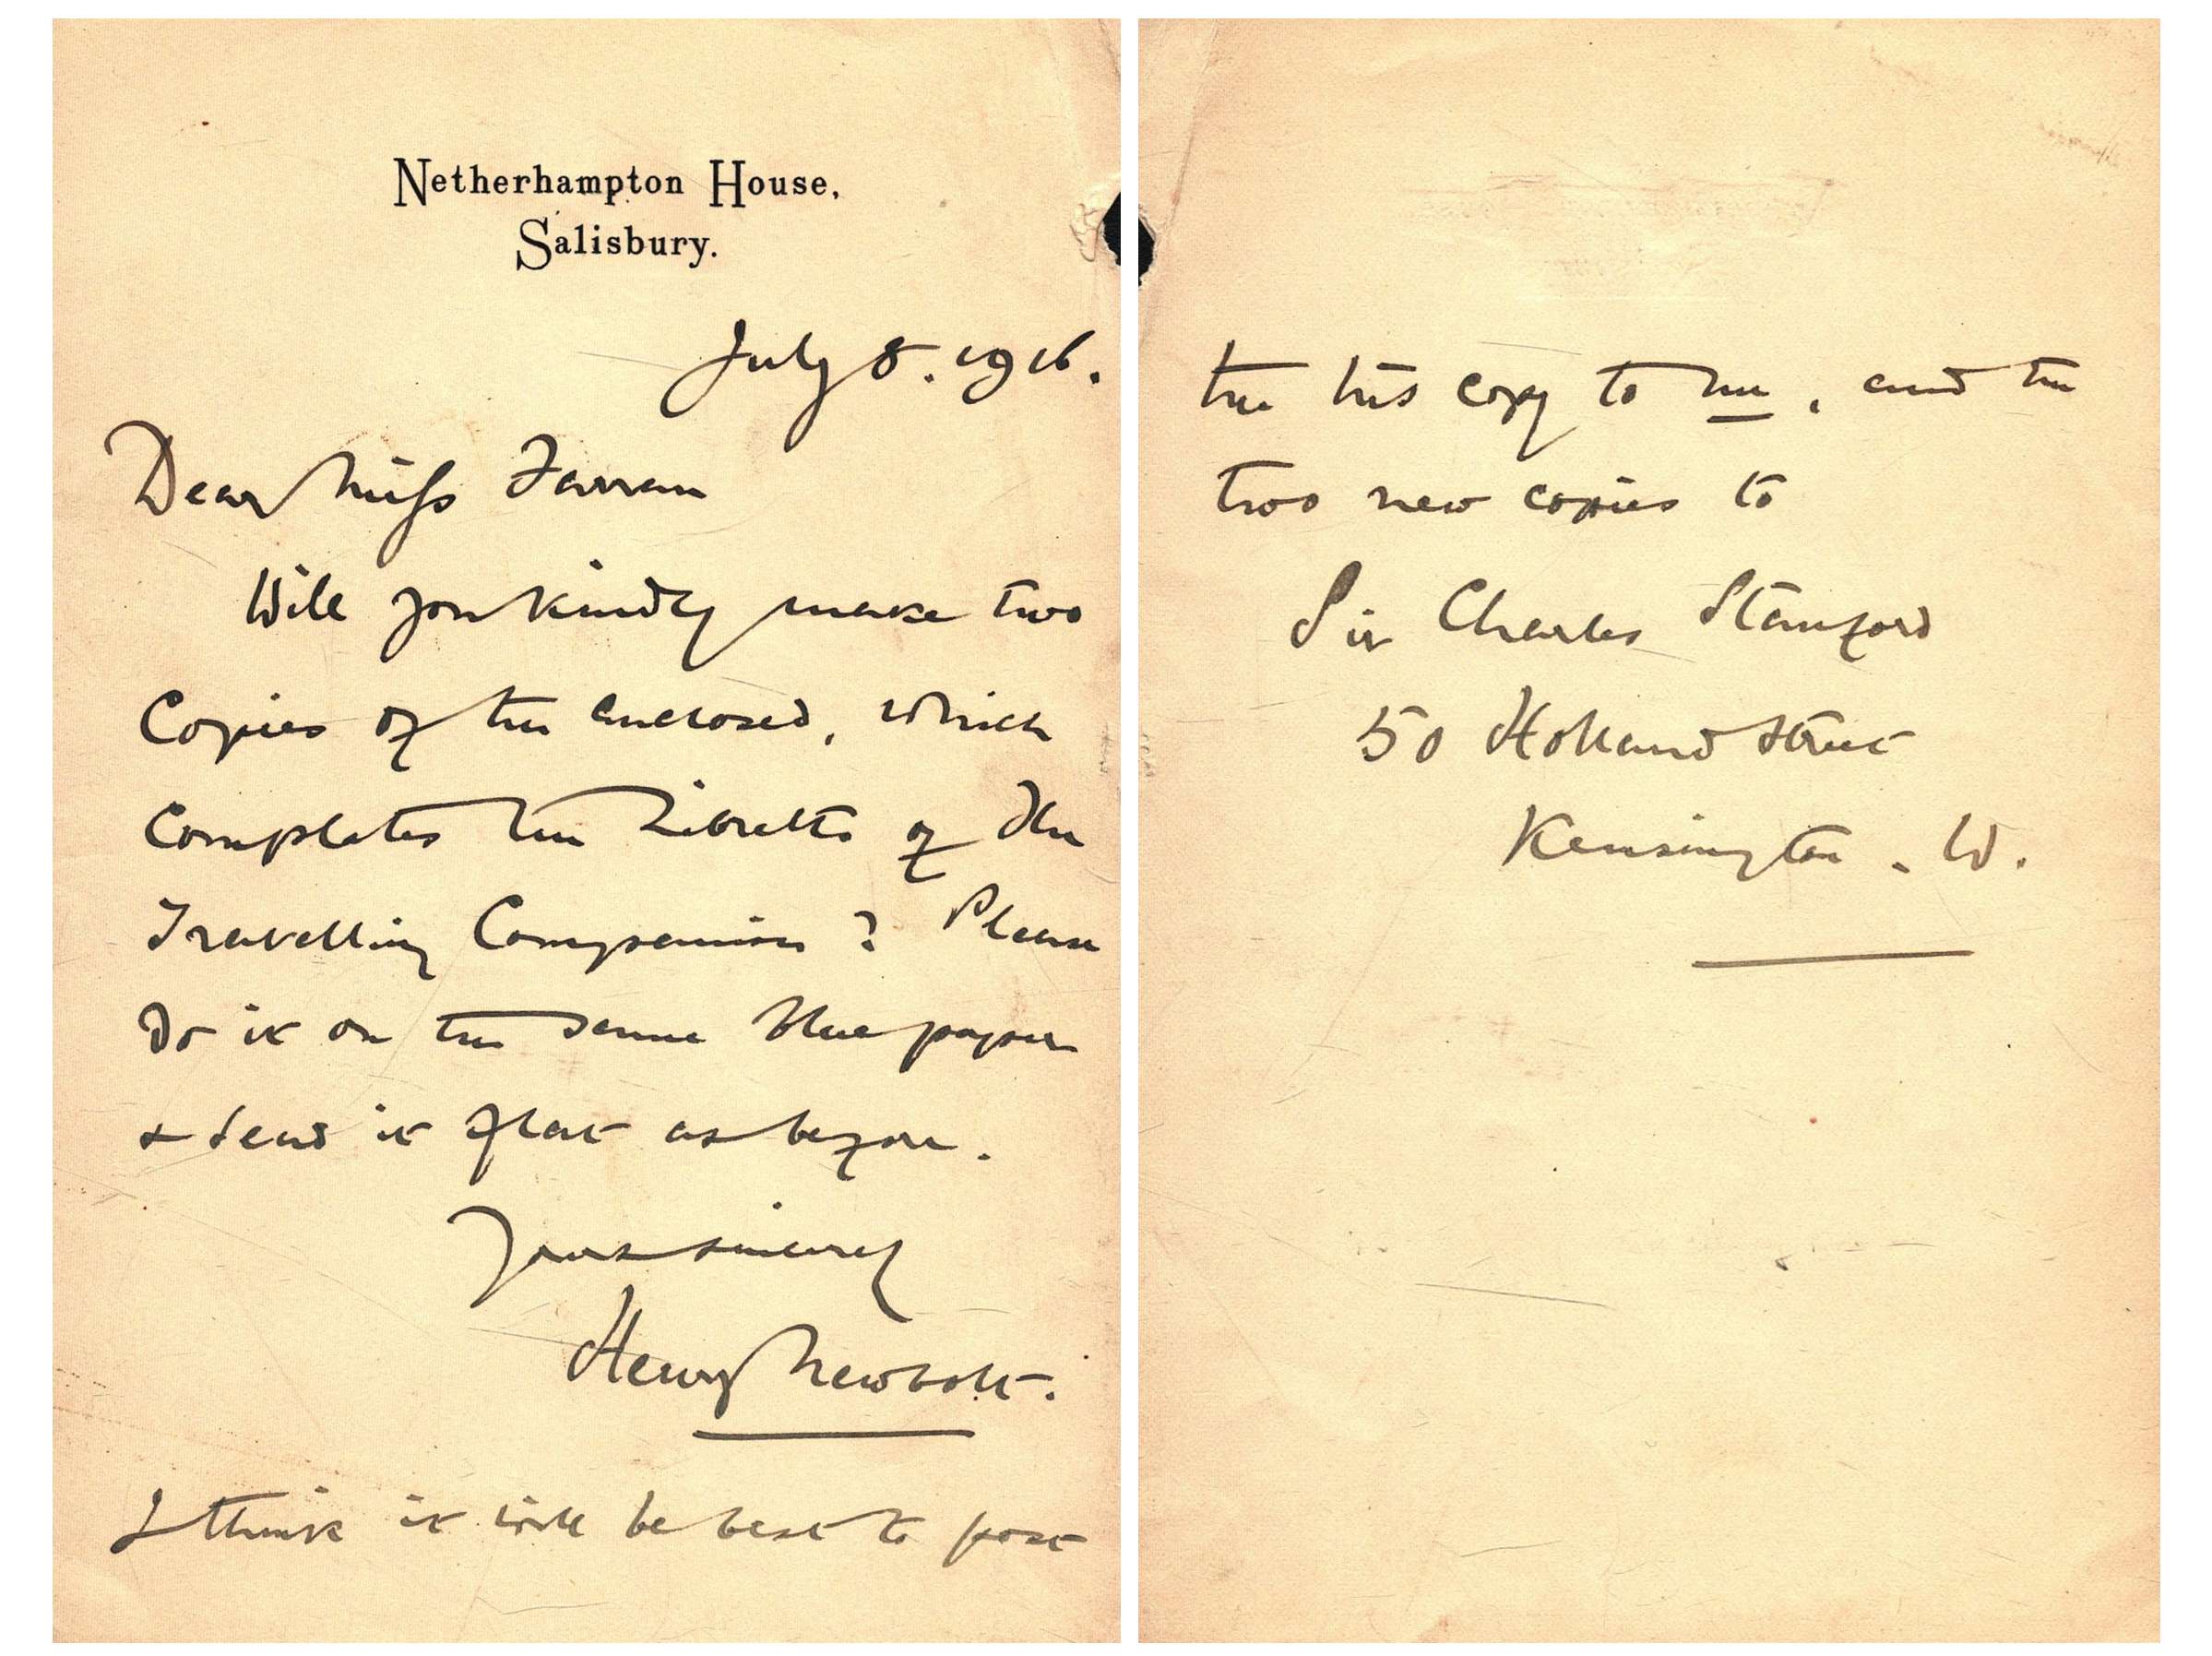 Netherhampton House,
Salisbury.
July 8. 1916.
Dear Miss Farran
Will you kindly make two
Copies of the enclosed, which
Completes the Libretto of The
Travelling Companion? Please
do it on the same blue paper
& send it flat as before.
Yours sincerely
Henry Newbolt.
I think it will be best to post
the this copy to me, and the
two new copies to
Sir Charles Stanford
50 Holland Street
Kensington. W.